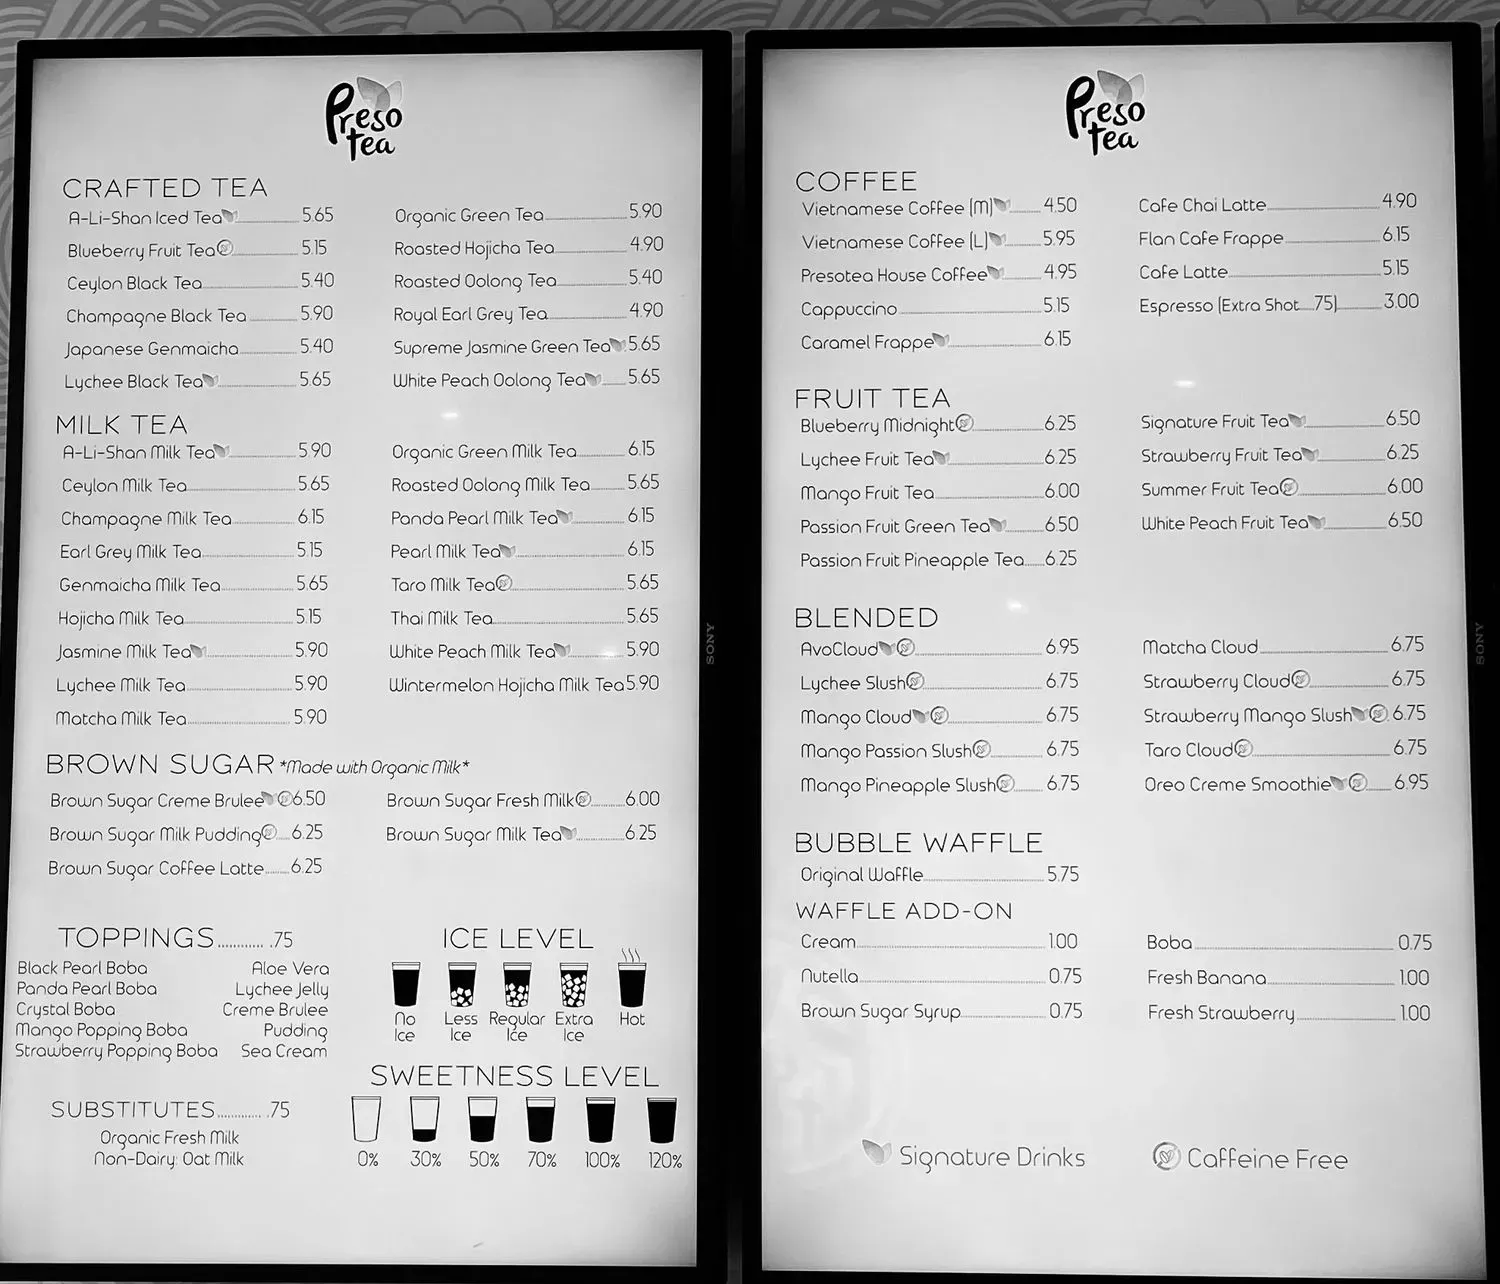 Preso
tea
CRAFTED TEA
A-Li-Shan Iced Tea 5.65
Blueberry Fruit Tea 5.15
Ceylon Black Tea 5.40
Champagne Black Tea 5.90
Japanese Genmaicha 5.40
Lychee Black Tea 5.65
Organic Green Tea 5.90
Roasted Hojicha Tea 4.90
Roasted Oolong Tea 5.40
Royal Earl Grey Tea 4.90
Supreme Jasmine Green Tea 5.65
White Peach Oolong Tea 5.65
MILK TEA
A-Li-Shan Milk Tea 5.90
Ceylon Milk Tea 5.65
Champagne Milk Tea 6.15
Earl Grey Milk Tea 5.15
Genmaicha Milk Tea 5.65
Hojicha Milk Tea 5.15
Jasmine Milk Tea 5.90
Lychee Milk Tea 5.90
Matcha Milk Tea 5.90
Organic Green Milk Tea 6.15
Roasted Oolong Milk Tea 5.65
Panda Pearl Milk Tea 6.15
Pearl Milk Tea 6.15
Taro Milk Tea 5.65
Thai Milk Tea 5.65
White Peach Milk Tea 5.90
Wintermelon Hojicha Milk Tea 5.90
BROWN SUGAR *Made with Organic Milk*
Brown Sugar Creme Brulee 6.50
Brown Sugar Milk Pudding 6.25
Brown Sugar Coffee Latte 6.25
Brown Sugar Fresh Milk 6.00
Brown Sugar Milk Tea 6.25
TOPPINGS............ .75
Black Pearl Boba
Panda Pearl Boba
Crystal Boba
Mango Popping Boba
Strawberry Popping Boba
Aloe Vera
Lychee Jelly
Creme Brulee
Pudding
Sea Cream
SUBSTITUTES............ .75
Organic Fresh Milk
Non-Dairy: Oat Milk
ICE LEVEL
No Ice
Less Ice
Regular Ice
Extra Ice
Hot
SWEETNESS LEVEL
0% 30% 50% 70% 100% 120%
SONY
Preso
tea
COFFEE
Vietnamese Coffee (M) 4.50
Vietnamese Coffee (L) 5.95
Presotea House Coffee 4.95
Cappuccino 5.15
Caramel Frappe 6.15
Cafe Chai Latte 4.90
Flan Cafe Frappe 6.15
Cafe Latte 5.15
Espresso (Extra Shot....75) 3.00
FRUIT TEA
Blueberry Midnight 6.25
Lychee Fruit Tea 6.25
Mango Fruit Tea 6.00
Passion Fruit Green Tea 6.50
Passion Fruit Pineapple Tea 6.25
Signature Fruit Tea 6.50
Strawberry Fruit Tea 6.25
Summer Fruit Tea 6.00
White Peach Fruit Tea 6.50
BLENDED
AvoCloud 6.95
Lychee Slush 6.75
Mango Cloud 6.75
Mango Passion Slush 6.75
Mango Pineapple Slush 6.75
Matcha Cloud 6.75
Strawberry Cloud 6.75
Strawberry Mango Slush 6.75
Taro Cloud 6.75
Oreo Creme Smoothie 6.95
BUBBLE WAFFLE
Original Waffle 5.75
WAFFLE ADD-ON
Cream 1.00
Nutella 0.75
Brown Sugar Syrup 0.75
Boba 0.75
Fresh Banana 1.00
Fresh Strawberry 1.00
Signature Drinks
Caffeine Free
SONY